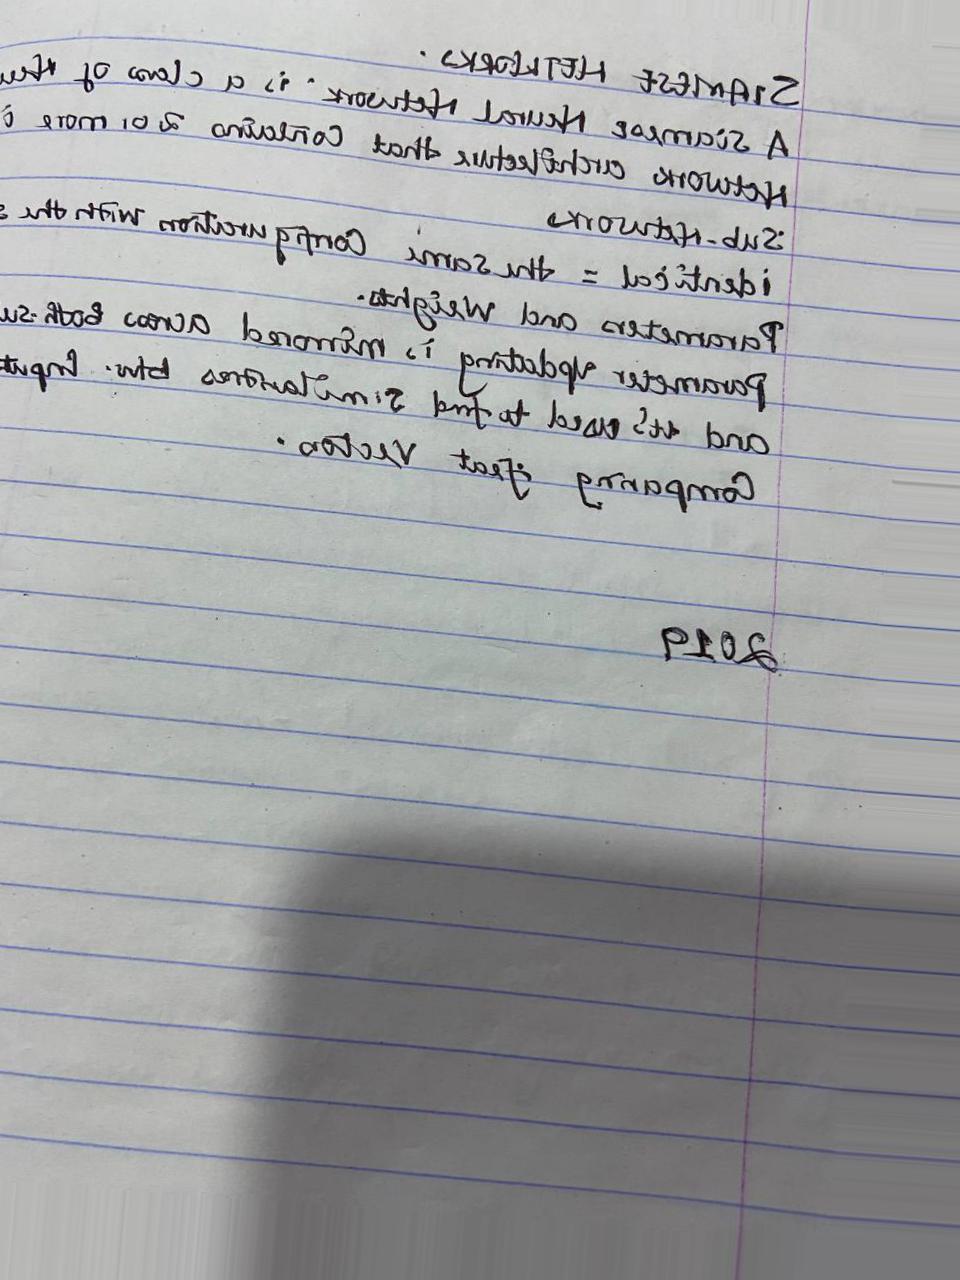 SIAMESE NETWORKS.
A Siamese Neural Network. is a class of
Network architecture that contains 2 or more
Sub-Networks
identical = the same configuration with the
Parameters and Weights.
Parameter updating is mirrored across both
and it's used to find Similarities
Comparing feat Vector.
2019